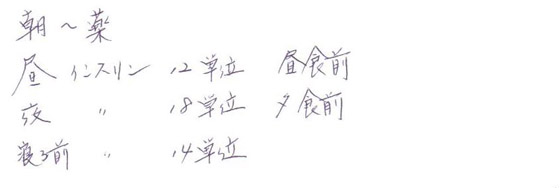 朝～薬
昼 インスリン 12単位 昼食前
夜 〃 18単位 夕食前
寝る前 〃 14単位